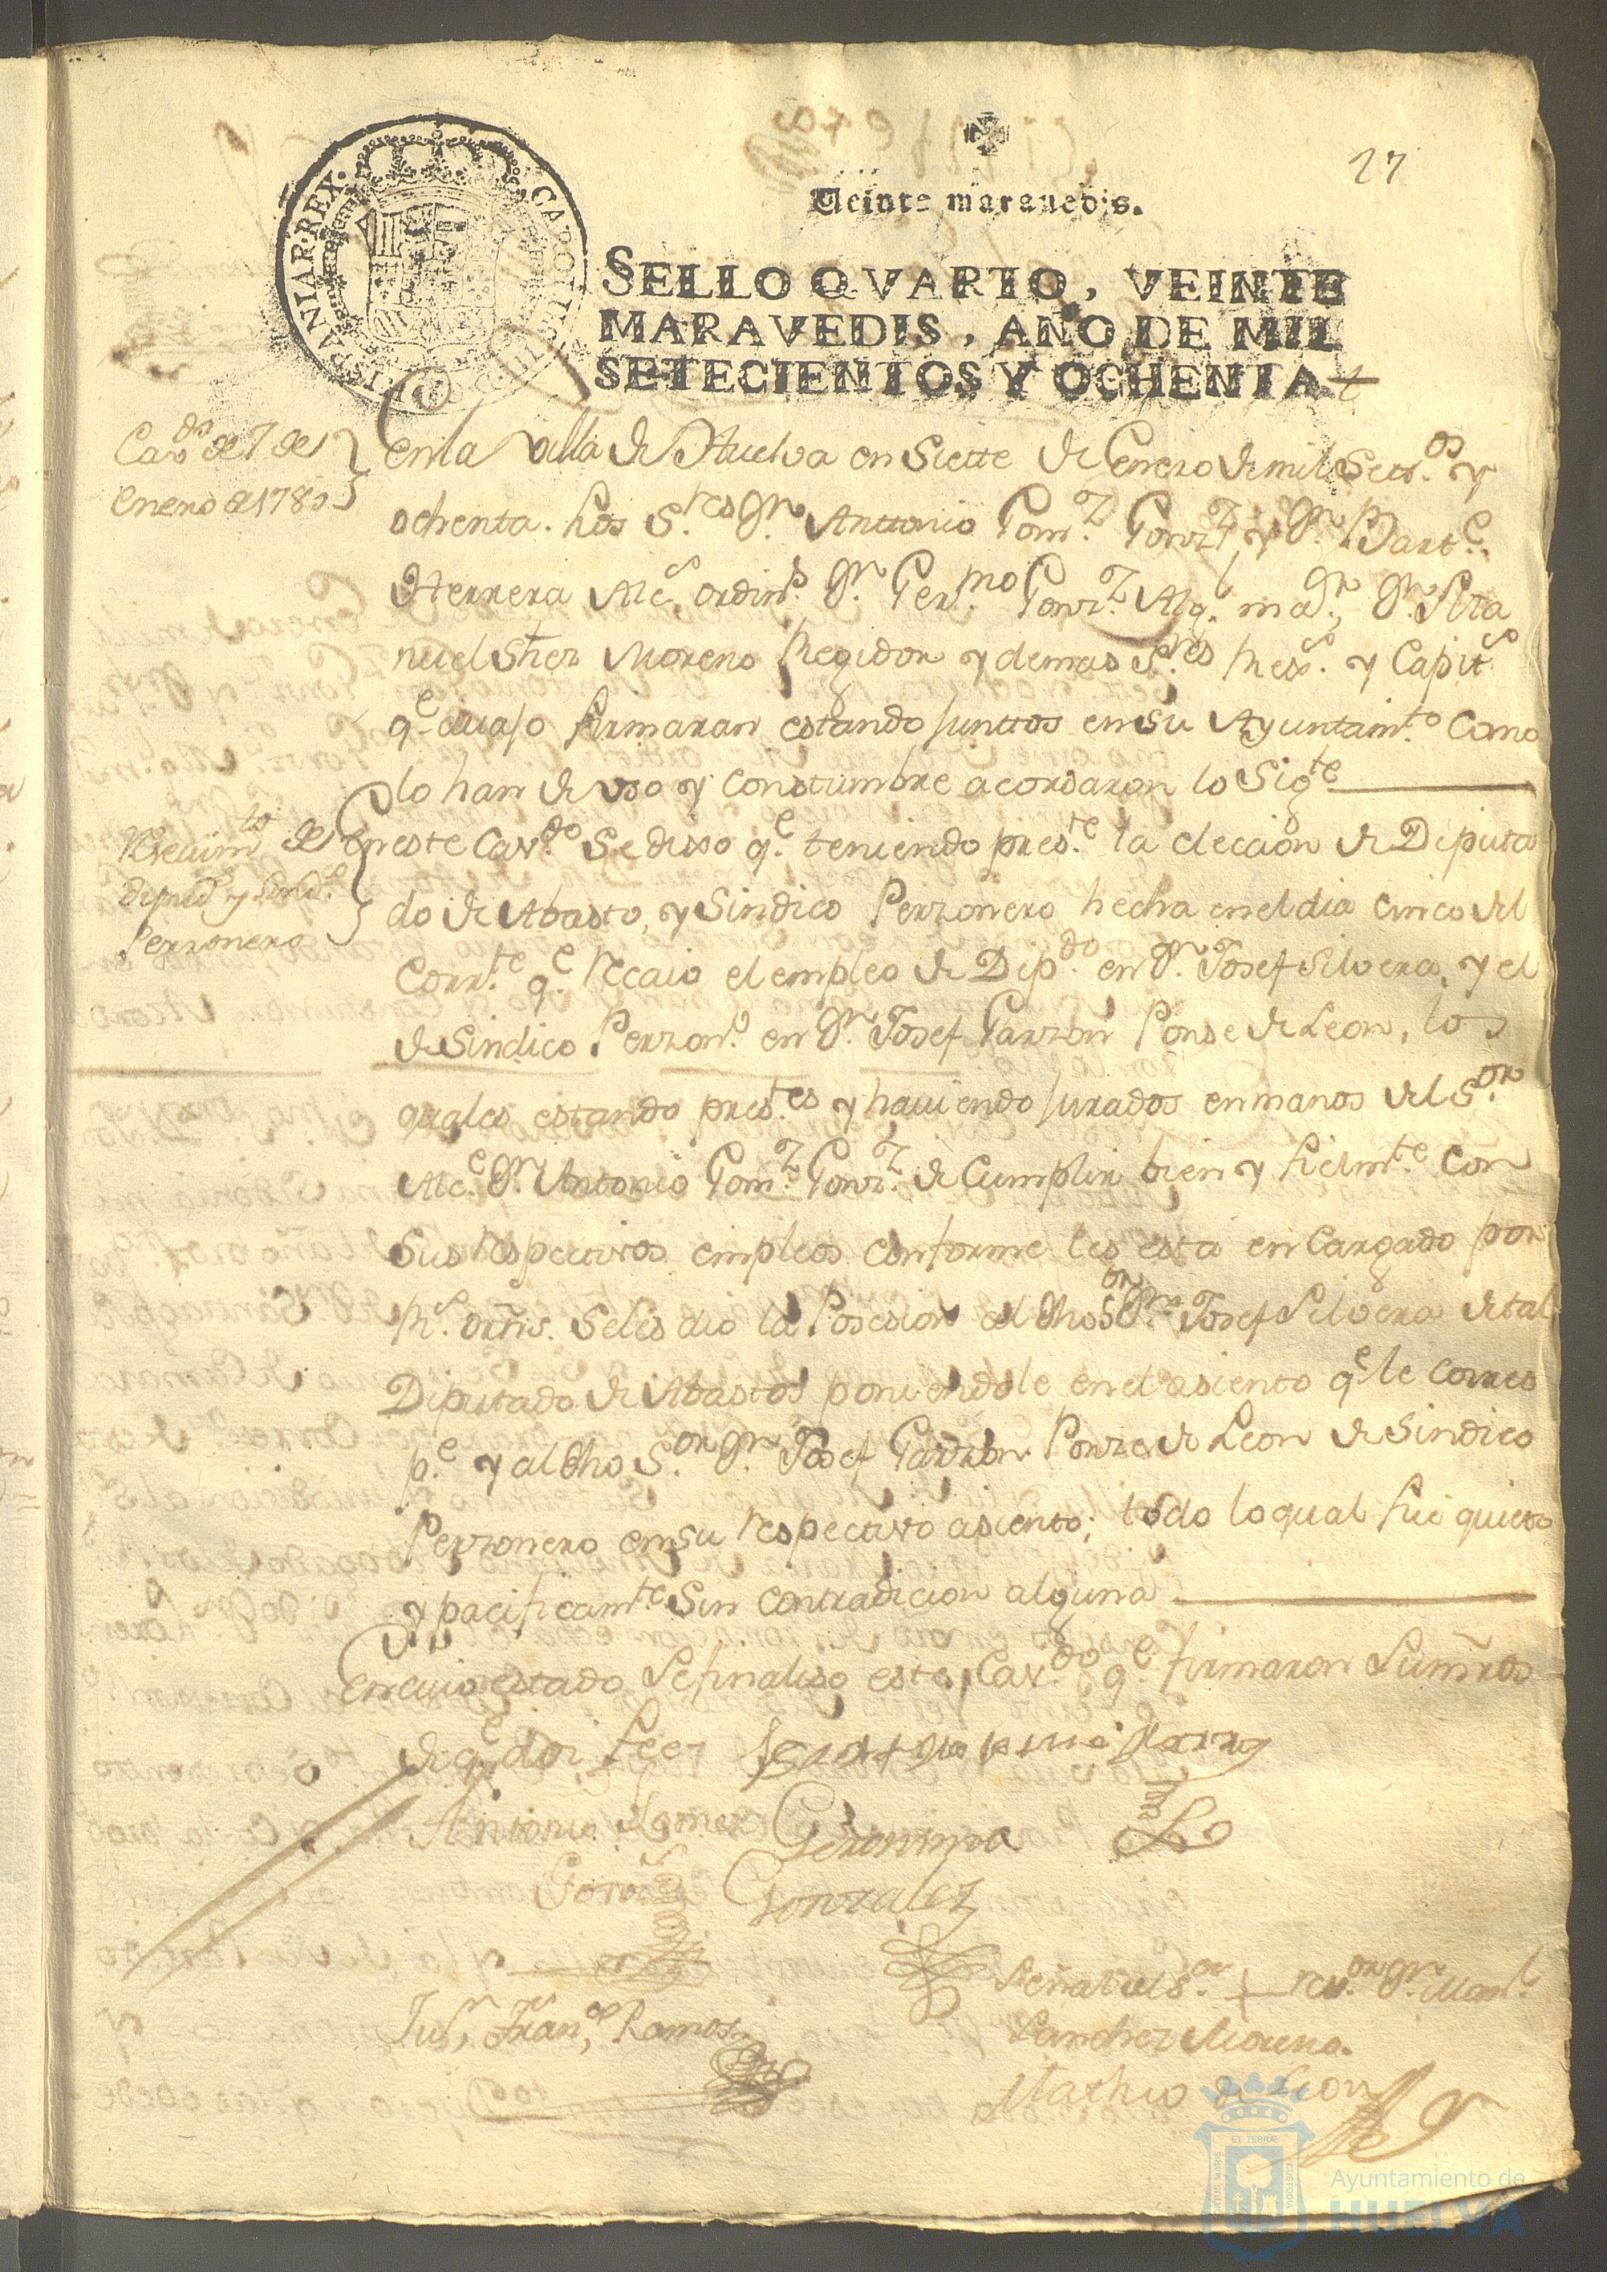 27
Veinte maravedis.
HISPANIAR. REX. CAROLUS III D. G.
SELLO QVARTO, VEINTE
MARAVEDIS, AÑO DE MIL
SETECIENTOS Y OCHENTA
Cavdo de 7 de
Enero de 1780
en la Villa de Huelva en Siette de Enero de mil Settos y
ochenta. los Sres Dn Anttonio Gomz Gonzz, y Dn Barte
Herrera Alcs ordins Dn Germo Gonzz Alg. mar, Dn Ma
nuel Shez Moreno Regidor y demas Sres Rexs y Capits
qe avajo firmaran estando junttos en su Ayuntamto como
lo han de uso y Constumbre acordaron lo Sigte
Recivimto de
diputd y Sindo
Perzonero
En este Cavdo Se dixo qe teniendo preste la eleccion de Diputa
do de Abasto, y Sindico Perzonero hecha en el dia cinco del
Corrte qe recaio el empleo de Dipdo en Dn Josef Silvera, y el
de Sindico Perzono en Dn Josef Garzon Ponse de Leon, los
quales estando prestes y haviendo jurados en manos del Sor
Alce Dn Antonio Gomz Gonzz de Cumplir bien y fielmte con
Sus respectivos empleos conforme les esta encargado por
Rs orñs. Se les dio la Posesion al dho Sor Dn Josef Silvera de tal
Diputado de Abastos poniendole en el asiento qe le corres
pe y al dho Sor Dn Josef Garzon Ponze de Leon de Sindico
Perzonero en su respectivo asiento; todo lo qual fue quieto
y pacificamte Sin contradicion alguna
En cuio estado Se finaliso este Cavdo qe firmaron Sus mrds
de qe doi fee
Antonio Gomez Geronimo
Gonz Gonzalez
Señal del Sor + rexor Dn Manl
Sanchez Moreno.
Jun Franco Ramos
Mathio de Leon
Ayuntamiento de
HUELVA